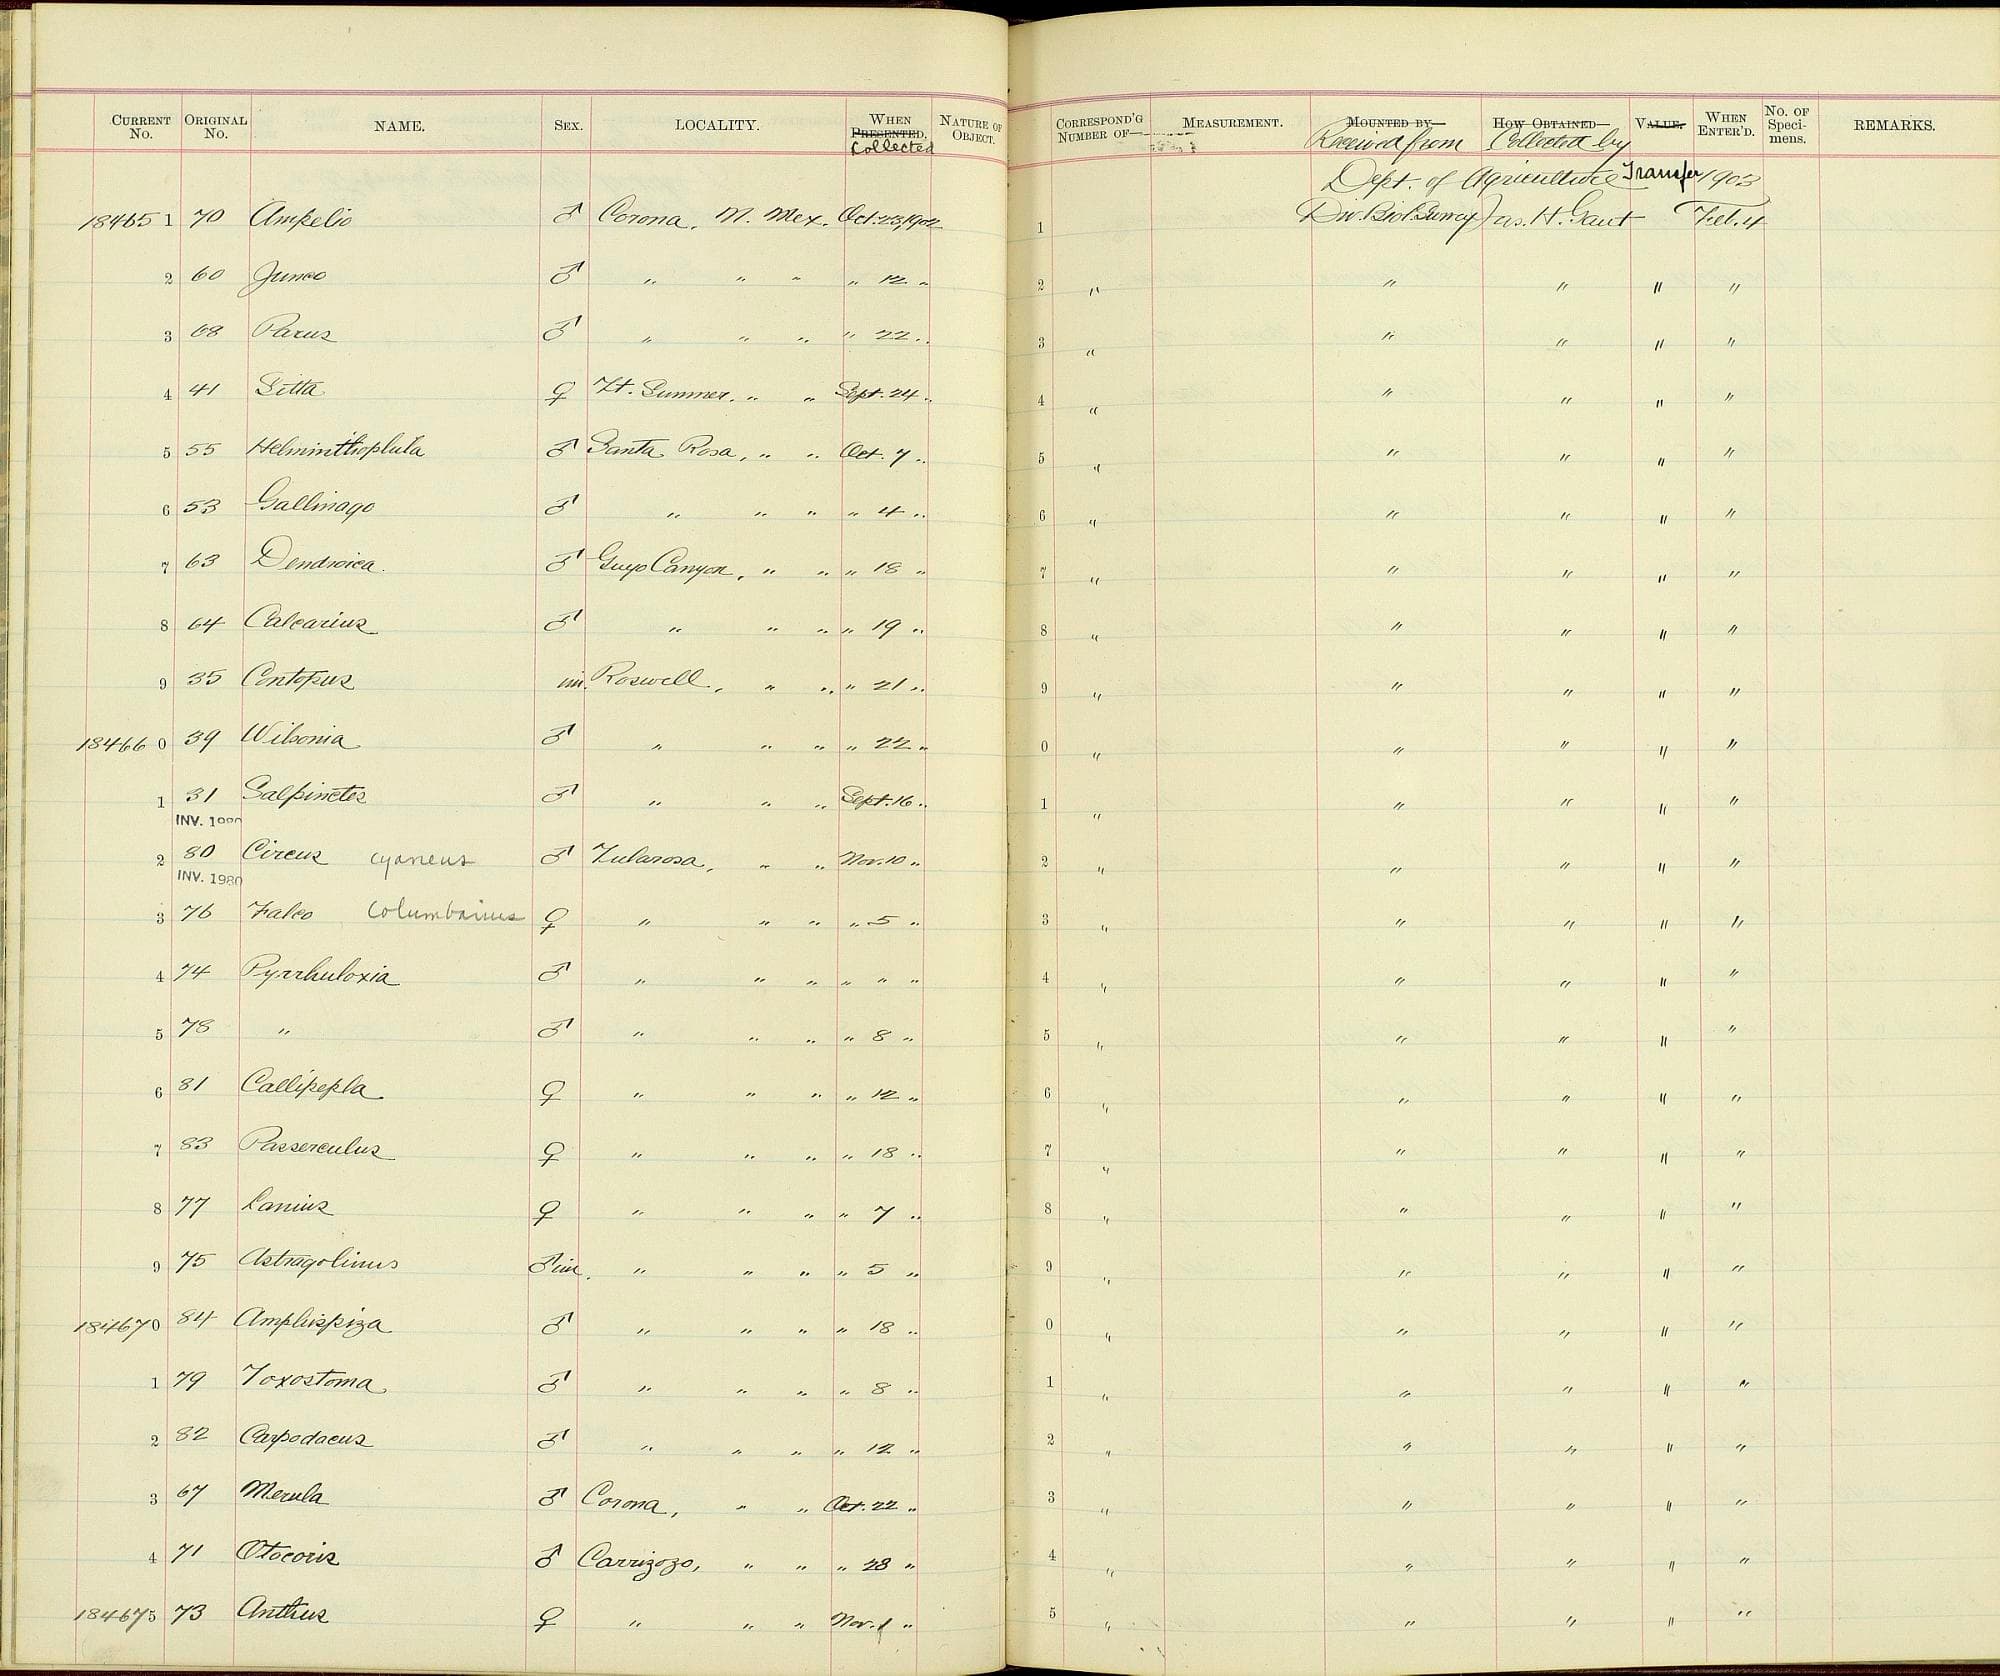 CURRENT No. ORIGINAL No. NAME. SEX. LOCALITY. WHEN PRESENTED. Collected NATURE OF OBJECT. CORRESPOND'G NUMBER OF— MEASUREMENT. MOUNTED BY— Received from HOW OBTAINED— Collected by VALUE. WHEN ENTER'D. No. OF Speci-mens. REMARKS.
Dept. of Agriculture Transfer 1903
184651 70 Ampelis ♂ Corona, N. Mex. Oct. 23, 1902 1 Div. Biol. Survey Jas. H. Gaut Feb. 4
2 60 Junco ♂ " " " " 12 " 2 " " " " "
3 68 Parus ♂ " " " " 22 " 3 " " " " "
4 41 Sitta ♀ Ft. Sumner, " " Sept. 24 " 4 " " " " "
5 55 Helminthophila ♂ Santa Rosa, " " Oct. 7 " 5 " " " " "
6 53 Gallinago ♂ " " " " 4 " 6 " " " " "
7 63 Dendroica. ♂ Guyo Canyon, " " " 18 " 7 " " " " "
8 64 Calcarius ♂ " " " " 19 " 8 " " " " "
9 35 Contopus im. Roswell, " " " 21 " 9 " " " " "
184660 39 Wilsonia ♂ " " " " 22 " 0 " " " " "
1 31 Salpinctes ♂ " " " Sept. 16 " 1 " " " " "
INV. 1980
2 80 Circus cyaneus ♂ Tularosa, " " Nov. 10 " 2 " " " " "
INV. 1980
3 76 Falco columbarius ♀ " " " " 5 " 3 " " " " "
4 74 Pyrrhuloxia ♂ " " " " " " 4 " " " " "
5 78 " ♂ " " " " 8 " 5 " " " " "
6 81 Callipepla ♀ " " " " 12 " 6 " " " " "
7 83 Passerculus ♀ " " " " 18 " 7 " " " " "
8 77 Lanius ♀ " " " " 7 " 8 " " " " "
9 75 Astragolinus ♂ im. " " " " 5 " 9 " " " " "
184670 84 Amphispiza ♂ " " " " 18 " 0 " " " " "
1 79 Toxostoma ♂ " " " " 8 " 1 " " " " "
2 82 Carpodacus ♂ " " " " 12 " 2 " " " " "
3 67 Merula ♂ Corona, " " Oct. 22 " 3 " " " " "
4 71 Otocoris ♂ Carrizozo, " " " 28 " 4 " " " " "
184675 73 Anthus ♀ " " " Nov. 1 " 5 " " " " "